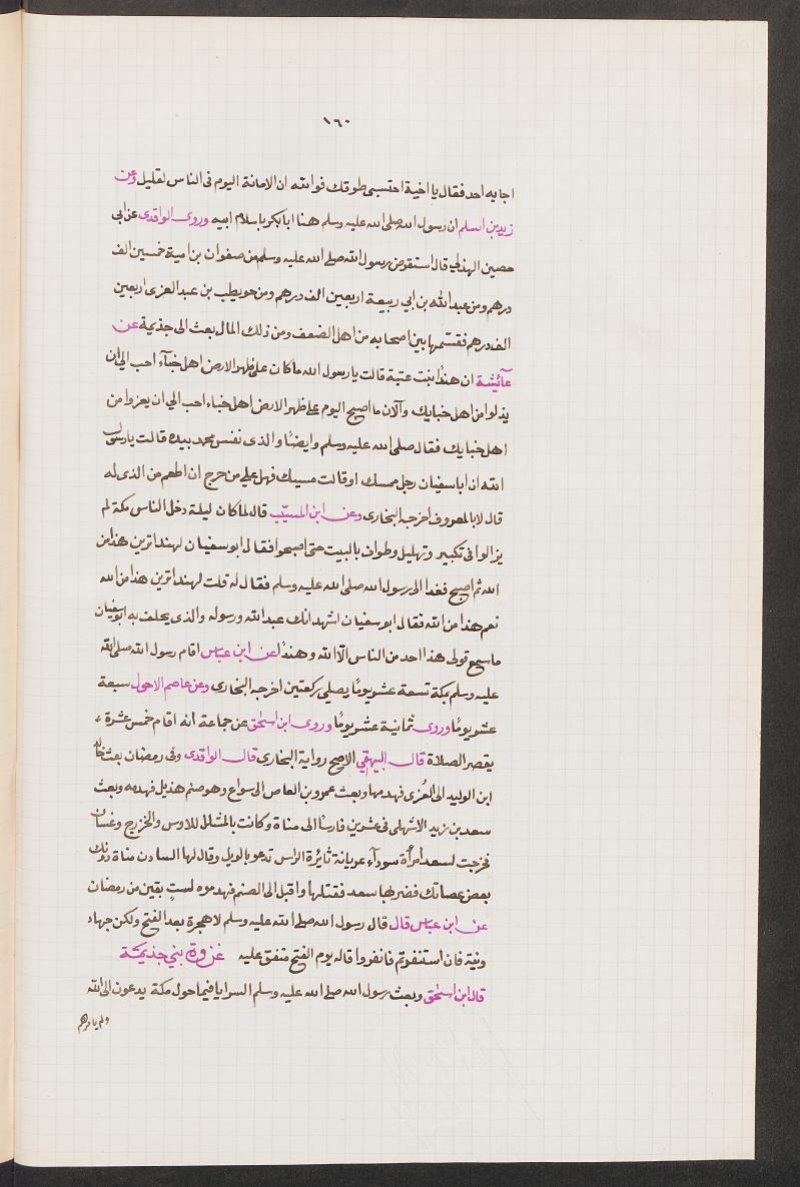 ١٦٠
اجابه احد فقال يا اخية احتسبي طوقك فوالله ان الامانة اليوم فى الناس لقليل وعن
زيد بن اسلم ان رسول الله صلى الله عليه وسلم هنا ابا بكر باسلام ابيه وروى الواقدى عن ابى
حصين الهذلي قال استقرض رسول الله صلى الله عليه وسلم من صفوان بن امية خمسين الف
درهم ومن عبد الله بن ابي ربيعة اربعين الف درهم ومن حويطب بن عبد العزى اربعين
الف درهم فقسمها بين اصحابه من اهل الضعف ومن ذلك المال بعث الى جذيمة عن
عآئيشة ان هندًا بنت عتبة قالت يا رسول الله ما كان على ظهر الارض اهل خبآء احب الي ان
يذلوا من اهل خبايك وآلان ما اصبح اليوم على ظهر الارض اهل خباء احب الي ان يعزوا من
اهل خبايك فقال صلى الله عليه وسلم وايضًا والذى نفس محمد بيده قالت يا رسول
الله ان ابا سفيان رجل ممسك او قالت مسيك فهل علي من حرج ان اطعم من الذى له
قال لا بالمعروف اخرجه البخارى وعن ابن المسيّب قال لما كان ليلة دخل الناس مكة لم
يزالوا فى تكبير وتهليل وطواف بالبيت حتى اصبحوا فقال ابو سفيان لهند اترين هذا من
الله ثم اصبح فغدا الى رسول الله صلى الله عليه وسلم فقال له قلت لهند اترين هذا من الله
نعم هذا من الله فقال ابو سفيان اشهد انك عبد الله ورسوله والذى يحلف به ابو سفيان
ما سمع قولى هذا احد من الناس الا الله وهندًا عن ابن عباس اقام رسول الله صلى الله
عليه وسلم بمكة تسعة عشر يومًا يصلي ركعتين اخرجه البخارى وعن عاصم الاحول سبعة
عشر يومًا وروى ثمانية عشر يومًا وروى ابن اسحٰق عن جماعة انه اقام خمس عشرة
يقصر الصلاة قال البيهقي الاصح رواية البخارى قال الواقدى وفى رمضان بعث خالد
ابن الوليد الى العُزى فهدمها وبعث عمرو بن العاص الى سواع وهو صنم هذيل فهدمه وبعث
سعد بن زيد الاشهلى فى عشرين فارسًا الى مناة وكانت بالمشلل للاوس والخزرج وغسان
فخرجت لسعد امرأة سودآء عريانة ثايرة الراس تدعو بالويل وقال لها السادن مناة دونك
بعض عصاتك فضربها سعد فقتلها واقبل الى الصنم فهدموه لستٍ بقين من رمضان
عن ابن عباس قال قال رسول الله صلى الله عليه وسلم لا هجرة بعد الفتح ولكن جهاد
ونية فان استنفرتم فانفروا قاله يوم الفتح متفق عليه غزوة بني جذيمة
قال ابن اسحٰق وبعث رسول الله صلى الله عليه وسلم السرايا فيما حول مكة يدعون الى الله
ولم يامرهم